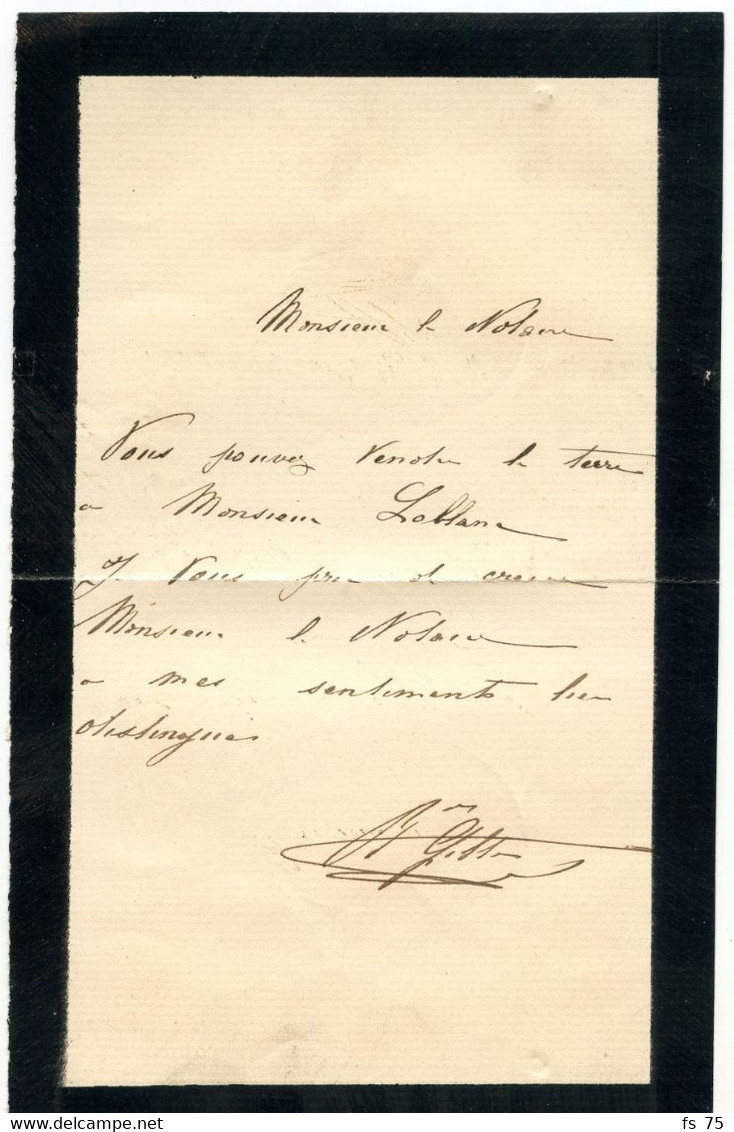 Monsieur le Notaire
Vous pouvez vendre la terre
a Monsieur Leblanc
Je Vous prie de croire
Monsieur le Notaire
a mes sentiments bien
distingués
delcampe.net
fs_75